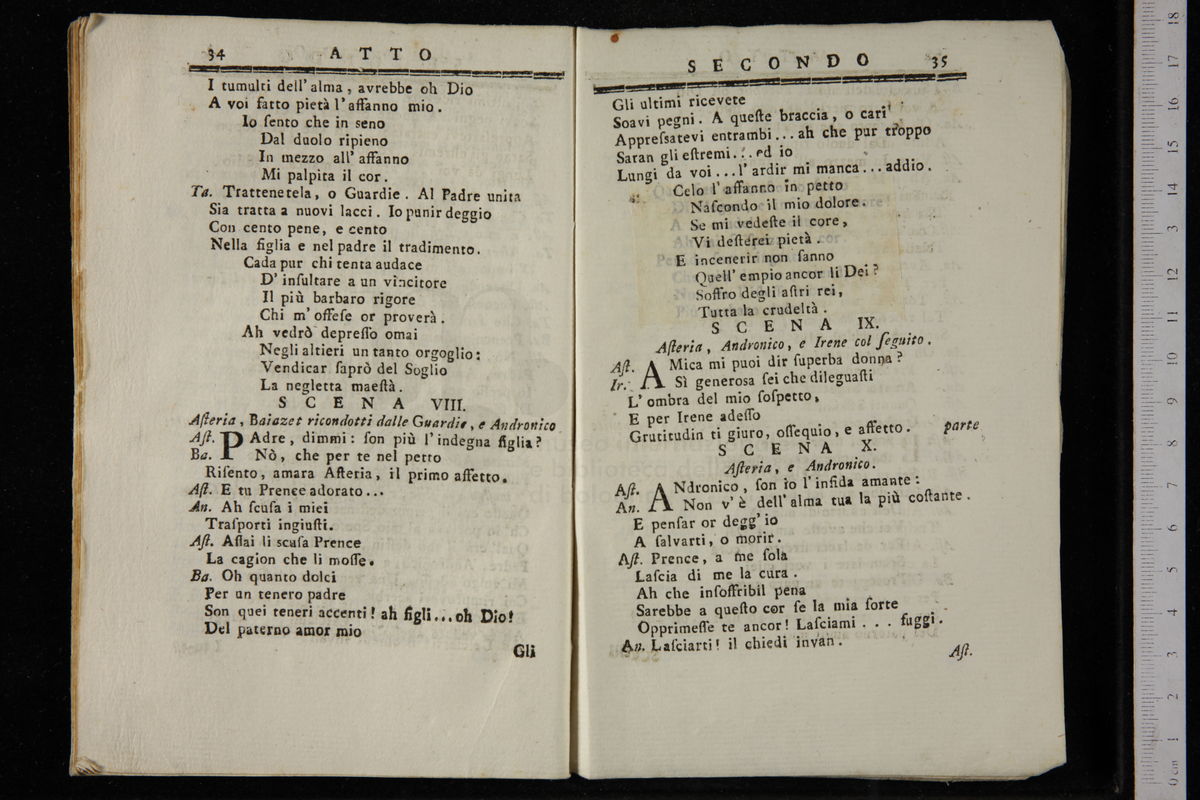 34 ATTO
I tumulti dell' alma, avrebbe oh Dio
A voi fatto pietà l' affanno mio.
Io ſento che in seno
Dal duolo ripieno
In mezzo all' affanno
Mi palpita il cor.
Ta. Trattenetela, o Guardie. Al Padre unita
Sia tratta a nuovi lacci. Io punir deggio
Con cento pene, e cento
Nella figlia e nel padre il tradimento.
Cada pur chi tenta audace
D' inſultare a un vincitore
Il più barbaro rigore
Chi m' offeſe or proverà.
Ah vedrò depreſſo omai
Negli altieri un tanto orgoglio:
Vendicar ſaprò del Soglio
La negletta maeſtà.
SCENA VIII.
Aſteria, Baiazet ricondotti dalle Guardie, e Andronico
Aſt. PAdre, dimmi: ſon più l' indegna figlia?
Ba. Nò, che per te nel petto
Riſento, amara Aſteria, il primo affetto.
Aſt. E tu Prence adorato...
An. Ah ſcuſa i miei
Traſporti ingiuſti.
Aſt. Aſſai li scuſa Prence
La cagion che li moſſe.
Ba. Oh quanto dolci
Per un tenero padre
Son quei teneri accenti! ah figli...oh Dio!
Del paterno amor mio
Gli
SECONDO 35
Gli ultimi ricevete
Soavi pegni. A queſte braccia, o cari
Appreſsatevi entrambi... ah che pur troppo
Saran gli eſtremi... ed io
Lungi da voi... l' ardir mi manca... addio.
Celo l' affanno in petto
Naſcondo il mio dolore.
Se mi vedeſte il core,
Vi deſterei pietà.
E incenerir non ſanno
Quell' empio ancor li Dei?
Soffro degli aſtri rei,
Tutta la crudeltà.
SCENA IX.
Aſteria, Andronico, e Irene col ſeguito.
Aſt. AMica mi puoi dir ſuperba donna?
Ir. Sì generosa ſei che dileguaſti
L' ombra del mio ſoſpetto,
E per Irene adeſſo
Gratitudin ti giuro, oſſequio, e affetto. parte
SCENA X.
Aſteria, e Andronico.
Aſt. ANdronico, ſon io l' infida amante:
An. Non v' è dell' alma tua la più coſtante.
E penſar or degg' io
A ſalvarti, o morir.
Aſt. Prence, a me ſola
Laſcia di me la cura.
Ah che inſoffribil pena
Sarebbe a queſto cor ſe la mia ſorte
Opprimeſſe te ancor! Laſciami . . . fuggi.
An. Laſciarti! il chiedi invan.
Aſt.
0 cm 1 2 3 4 5 6 7 8 9 10 11 12 13 14 15 16 17 18